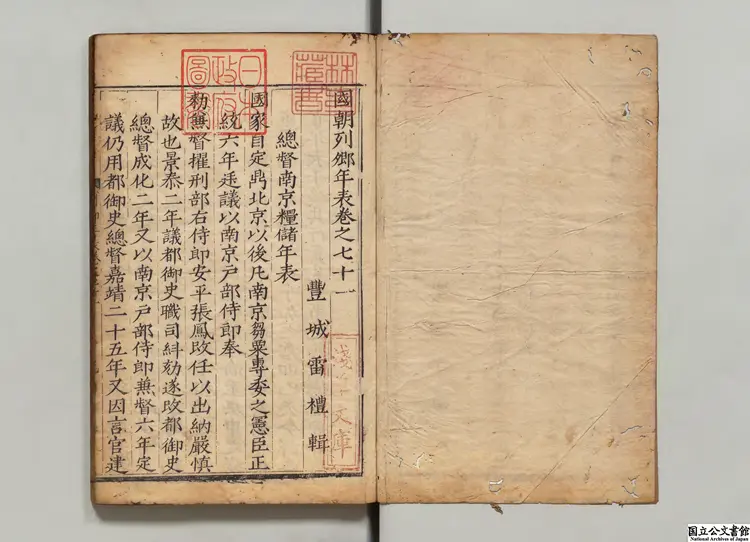 國朝列卿年表卷之七十一
豐城雷禮輯
總督南京糧儲年表
國家自定鼎北京以後凡南京芻粟專委之憲臣正
統六年廷議以南京戶部侍郎奉
勑兼督擢刑部右侍郎安平張鳳改任以出納嚴慎
故也景泰二年議都御史職司糾劾遂改都御史
總督成化二年又以南京戶部侍郎兼督六年定
議仍用都御史總督嘉靖二十五年又因言官建
日本政府圖書
林氏藏書
淺草文庫
国立公文書館
National Archives of Japan